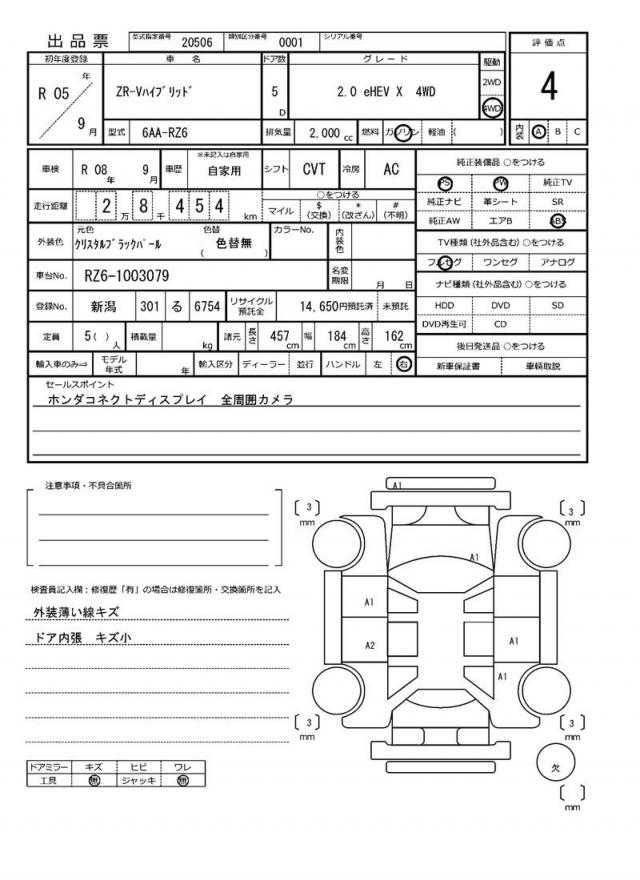 出品票 型式指定番号 20506 類別区分番号 0001 シリアル番号
初年度登録 車名 ドア数 グレード 駆動 評価点
R 05 年 9 月 ZR-Vハイブリッド 5 D 2.0 eHEV X 4WD 2WD 4WD 4
型式 6AA-RZ6 排気量 2,000 cc 燃料 ガソリン 軽油 ( ) 内装 A B C
車検 R 08 年 9 月 車歴 ※未記入は自家用 自家用 シフト CVT 冷房 AC
走行距離 2 万 8 千 4 5 4 km ○をつける マイル $ (交換) * (改ざん) # (不明)
外装色 元色 クリスタルブラックパール 色替 ( 色替無 ) カラーNo. 内装色
車台No. RZ6-1003079 名変期限 月 日
登録No. 新潟 301 る 6754 リサイクル預託金 14,650円預託済 未預託
定員 5( ) 人 積載量 kg 諸元 長さ 457 cm 幅 184 cm 高さ 162 cm
輸入車のみ⇒ モデル年式 年 輸入区分 ディーラー 並行 ハンドル 左 右
純正装備品 ○をつける
PS PW 純正TV
純正ナビ 革シート SR
純正AW エアB ABS
TV種類 (社外品含む) ○をつける
フルセグ ワンセグ アナログ
ナビ種類 (社外品含む) ○をつける
HDD DVD SD
DVD再生可 CD
後日発送品 ○をつける
新車保証書 車輌取説
セールスポイント
ホンダコネクトディスプレイ 全周囲カメラ
注意事項・不具合箇所
検査員記入欄:修復歴「有」の場合は修復箇所・交換箇所を記入
外装薄い線キズ
ドア内張 キズ小
ドアミラー キズ ヒビ ワレ
工具 無 ジャッキ 無
A1
[ 3 ] mm [ 3 ] mm
A1
A1
A2 A1
A1
[ 3 ] mm [ 3 ] mm
欠
[ ] mm